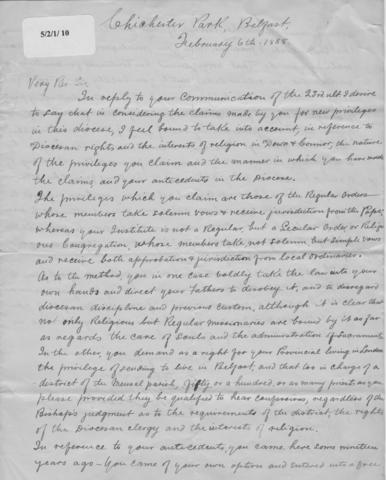 5/2/1/ 10
Chichester Park, Belfast,
February 6th. 1888
Very Rev Sir
In reply to your Communication of the 23rd ult I desire
to say that in considering the claims made by you for new privileges
in this diocese, I feel bound to take into account, in reference to
Diocesan rights and the interests of religion in Down & Connor, the nature
of the privileges you claim and the manner in which you have made
the claims, and your antecedents in the Diocese.
The privileges which you claim are those of the Regular Orders
whose members take solemn vows & receive jurisdiction from the Pope;
whereas your Institute is not a Regular, but a Secular Order, or Religi-
ous Congregation, whose members take not solemn but simple vows
and receive both approbation & jurisdiction from local ordinaries.
As to the method, you in one case boldly take the law into your
own hands and direct your Fathers to disobey it, and to disregard
diocesan discipline and previous custom, although it is clear that
no only Religious but Regular missionaries are bound by it as far
as regards the care of souls and the administration of Sacraments
In the other, you demand as a right for your Provincial living in London
the privilege of sending to live in Belfast, and that too in charge of a
district of the parish, fifty, or a hundred, or as many priests as you
please provided they be qualified to hear confessions, regardless of the
Bishop's judgment as to the requirements of the district, the rights
of the Diocesan clergy and the interests of religion.
In reference to your antecedents, you came here some nineteen
years ago – You came of your own option and entered into a free